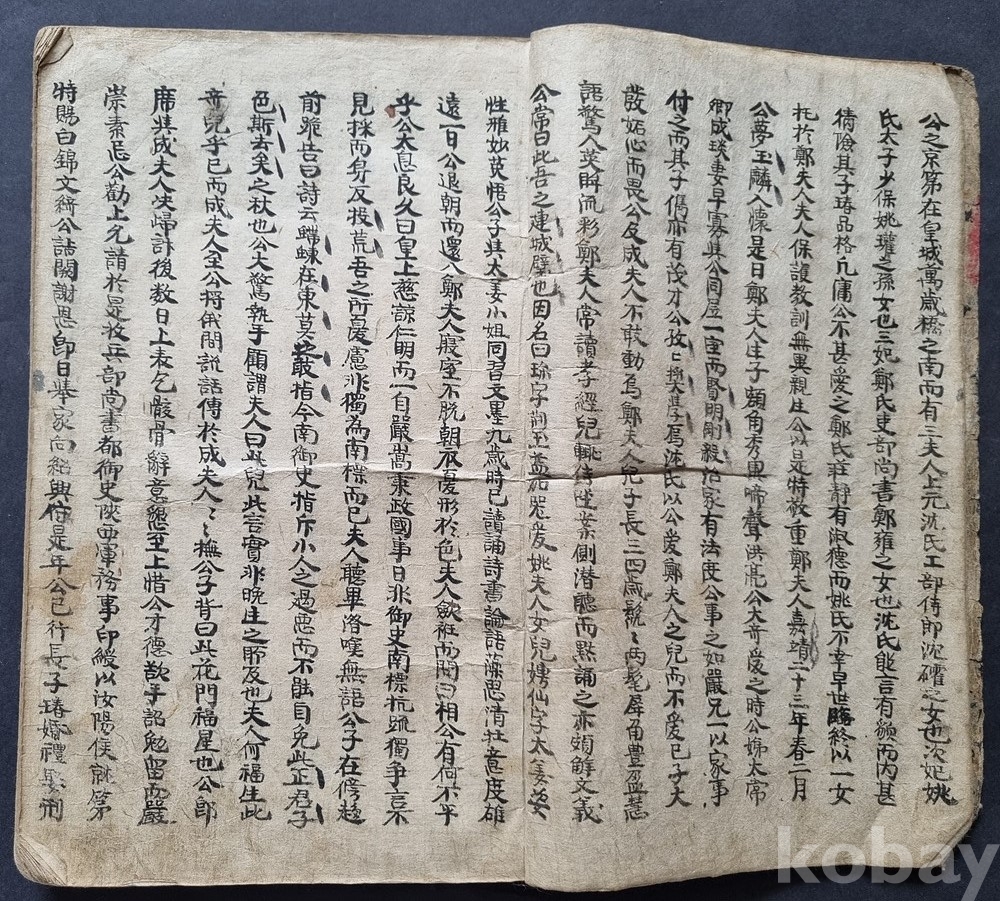 公之京第在皇城萬歲橋之南而有三夫人上元沈氏工部侍郎沈礭之女也次妃姚
氏太子少保姚瓘之孫女也三妃鄭氏吏部尚書鄭雍之女也沈氏能言有貌而內甚
猜險其子瑃品格凡庸公不甚愛之鄭氏莊靜有淑德而姚氏不幸早世臨終以一女
托於鄭夫人夫人保護敎訓無異親生公以是特敬重鄭夫人嘉靖二十三年春二月
公夢玉麟入懷是日鄭夫人生子頭角秀異啼聲洪亮公大奇愛之時公姊太常
卿成琰妻早寡與公同居一室而賢明剛毅治家有法度公事之如嚴兄一以家事
付之而其子儁亦有茂才公孜〻撫其子焉沈氏以公愛鄭夫人之兒而不愛已子大
發妬心而畏公及成夫人不敢動焉鄭夫人兒子長三四歲鬒〻兩髦犀角豊盈慧
語驚人英眸流彩鄭夫人常讀孝經兒輒侍坐業側潛聽而黙誦之亦頗解文義
公常曰此吾之建城璧也因名曰瑃字 益器愛姚夫人女兒娉仙字太姜姿
性雅妙英悟公子與太姜小姐同習文墨九歲時已讀誦詩書論語藻思清壯意度雄
遠一日公退朝而還入鄭夫人寢室不脫朝衣憂形於色夫人斂袵而問曰相公有何不平
乎公太息良久曰皇上慈諒仁明而一自嚴嵩秉政國事日非御史南標抗疏獨爭言不
見採而身反投荒吾之所憂慮非獨為南標而已夫人聽畢洛噓無語公子在傍趨
前跪告曰詩云蝃蝀在東莫之敢指今南御史指斥小人之過惡而不能自免此正君子
色斯去矣之秋也公大驚執手顧謂夫人曰此兒此言實非晚生之所及也夫人何福生此
奇兒乎已而成夫人至公將俄間說話傳於成夫人〻撫公子背曰此花門福星也公卽
席與成夫人决歸計後数日上表乞骸骨辭意懇至上惜公才德敎手詔勉留而嚴
崇素忌公勸上允請於是收兵部尚書都御史陝西軍務事印綬以汝陽侯就第
特賜白錦文綺公詣闕謝恩卽日擧家向紹興府是年公已行長子瑃婚禮娶刑
kobay